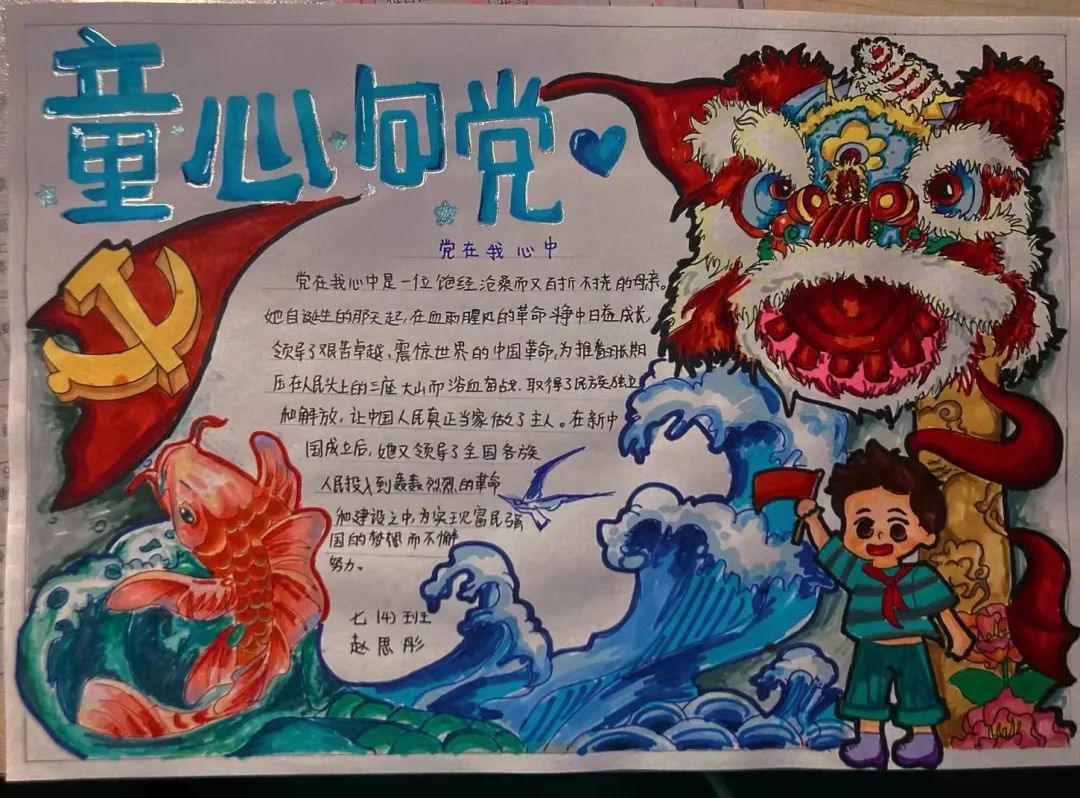 童心向党
党在我心中
党在我心中是一位饱经沧桑而又百折不挠的母亲。
她自诞生的那天起,在血雨腥风的革命斗争中日益成长,
领导了艰苦卓越、震惊世界的中国革命,为推翻长期
压在人民头上的三座大山而浴血奋战,取得了民族独立
和解放,让中国人民真正当家做了主人。在新中
国成立后,她又领导了全国各族
人民投入到轰轰烈烈的革命
和建设之中,为实现富民强
国的梦想而不懈
努力。
七(4)班
赵思彤